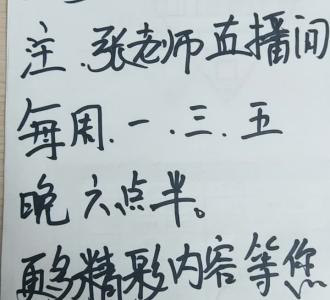 注.张老师直播间
每周.一.三.五
晚六点半。
更多精彩内容等您